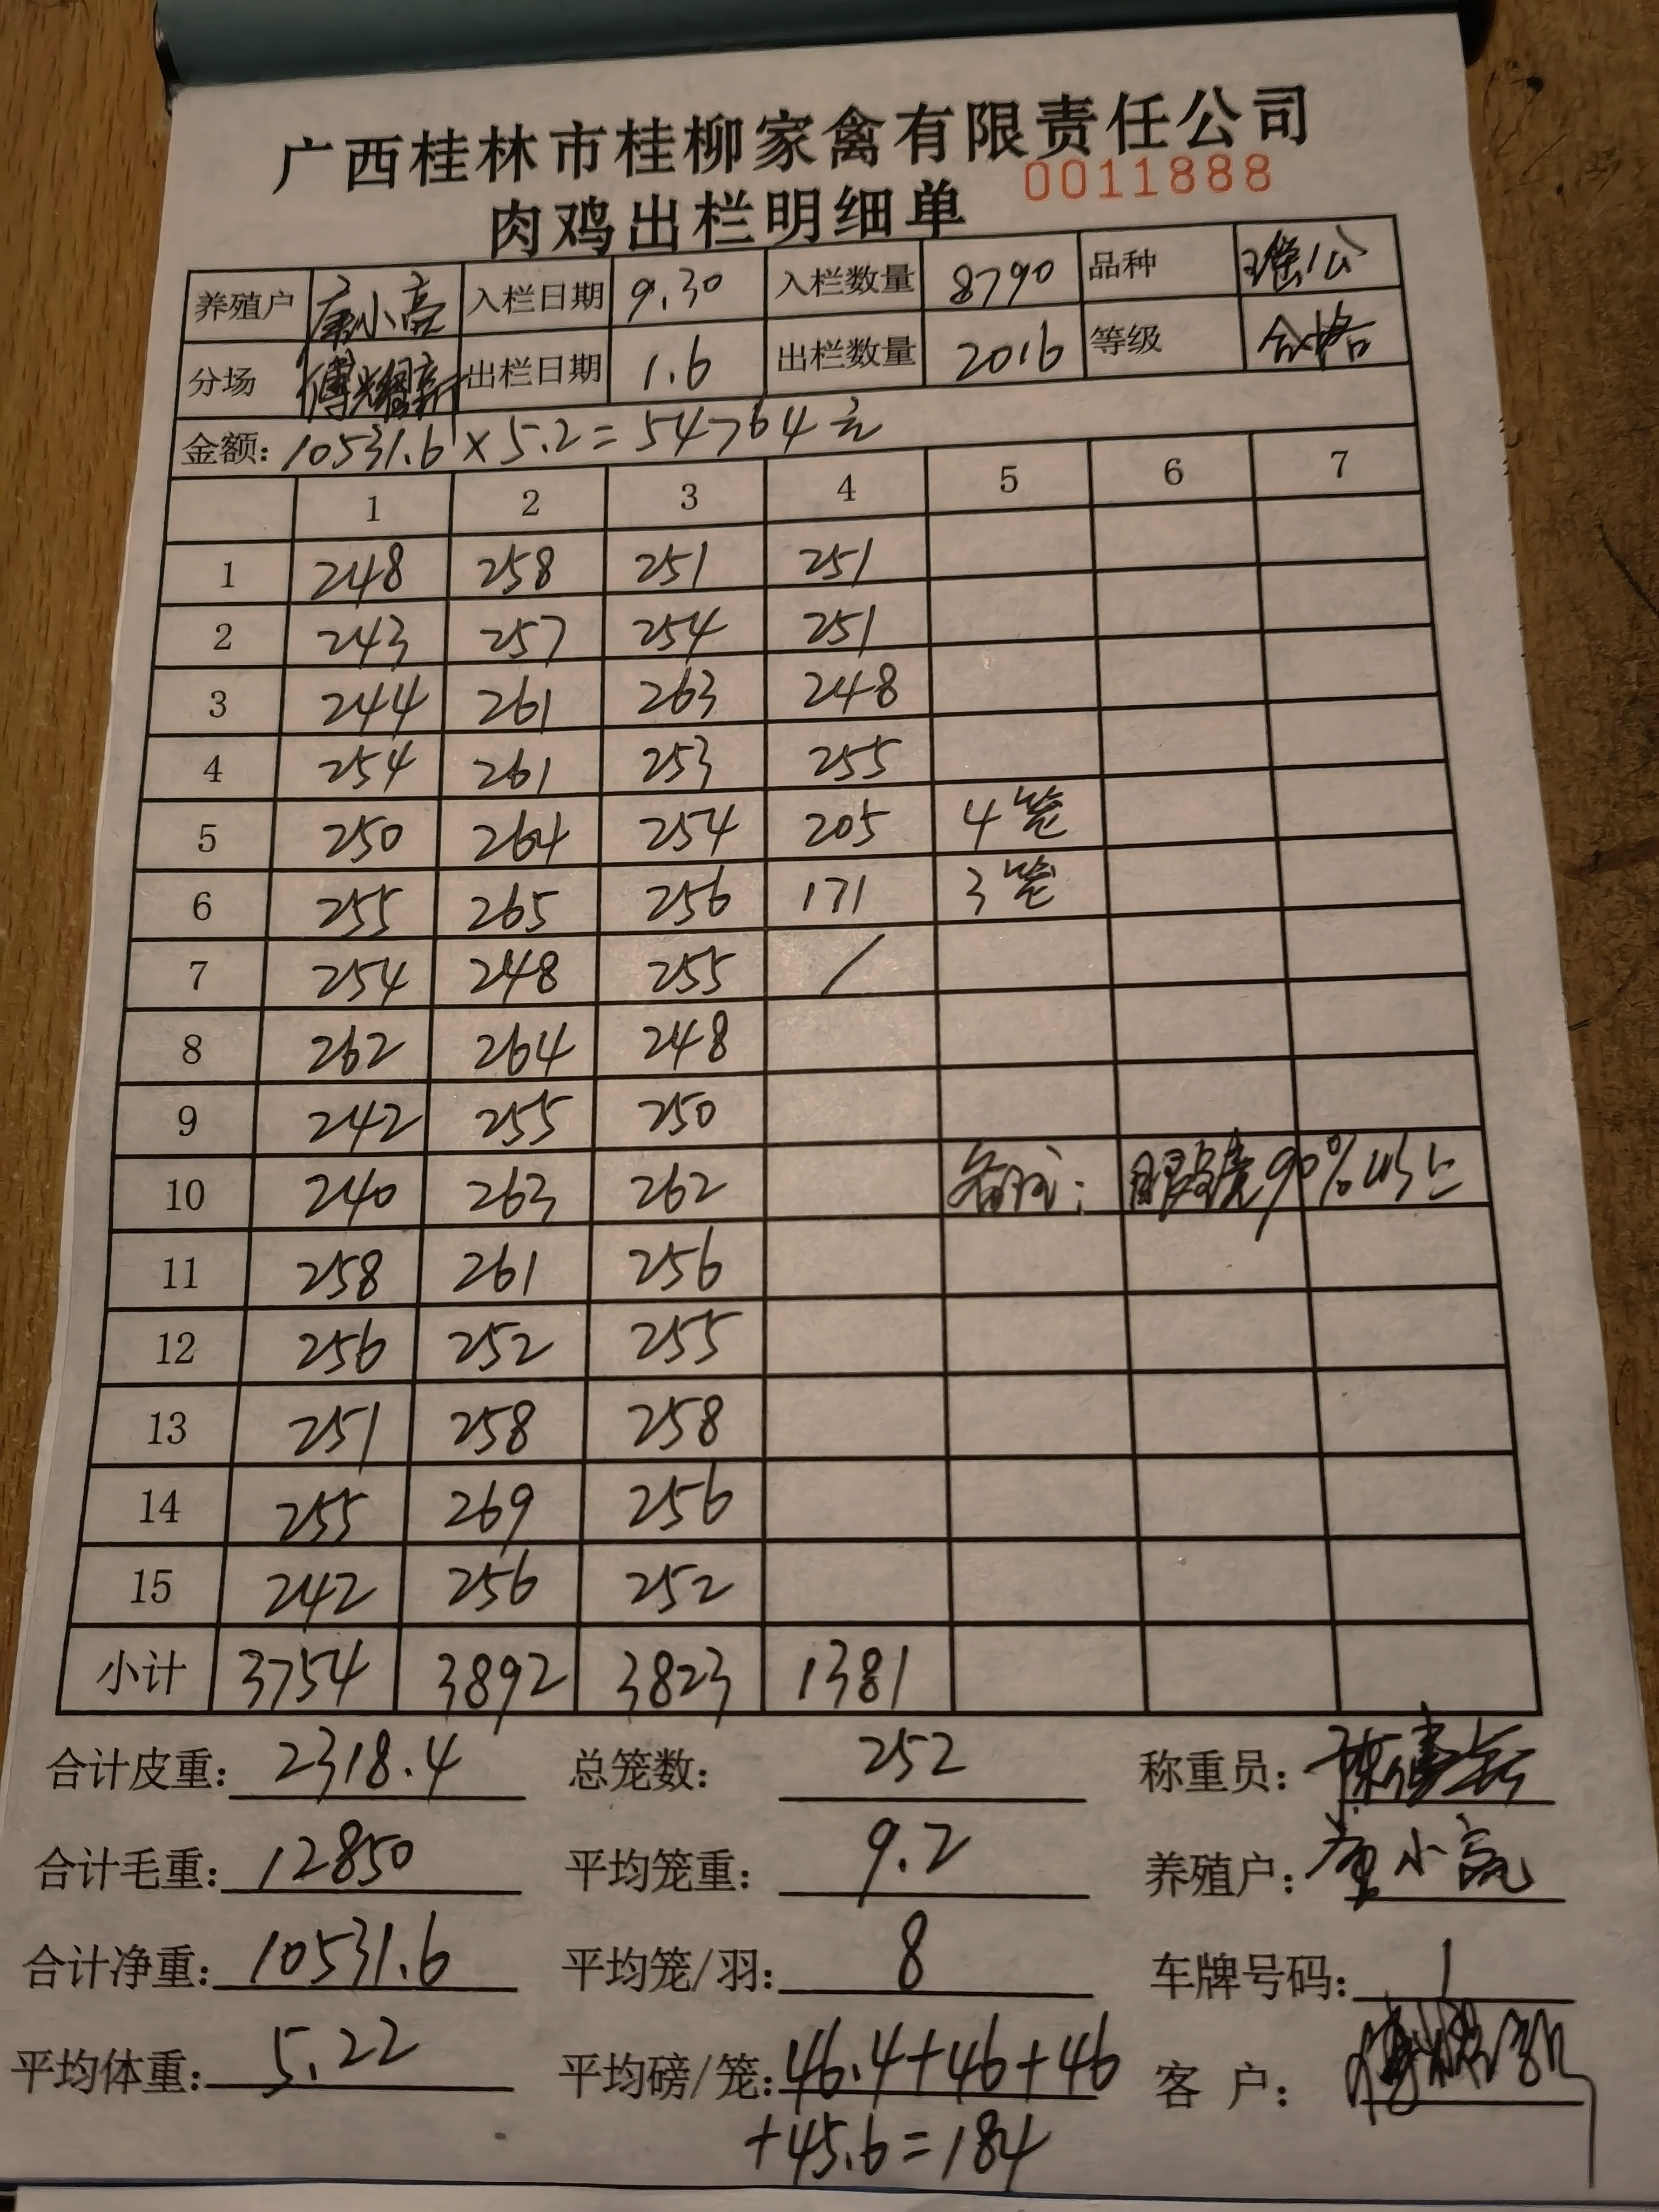 广西桂林市桂柳家禽有限责任公司
肉鸡出栏明细单 0011888
养殖户 唐小亮 入栏日期 9.30 入栏数量 8790 品种 瑶公
分场 傅耀新 出栏日期 1.6 出栏数量 2016 等级 合格
金额: 10531.6×5.2=54764元
1 2 3 4 5 6 7
1 248 258 251 251
2 243 257 254 251
3 244 261 263 248
4 254 261 253 255
5 250 264 254 205 4笼
6 255 265 256 171 3笼
7 254 248 255 /
8 262 264 248
9 242 255 250
10 240 263 262 备注: 90%以上
11 258 261 256
12 256 252 255
13 251 258 258
14 255 269 256
15 242 256 252
小计 3754 3892 3823 1381
合计皮重: 2318.4 总笼数: 252 称重员:
合计毛重: 12850 平均笼重: 9.2 养殖户: 唐小亮
合计净重: 10531.6 平均笼/羽: 8 车牌号码: 1
平均体重: 5.22 平均磅/笼: 46.4+46+46 客 户:
+45.6=184